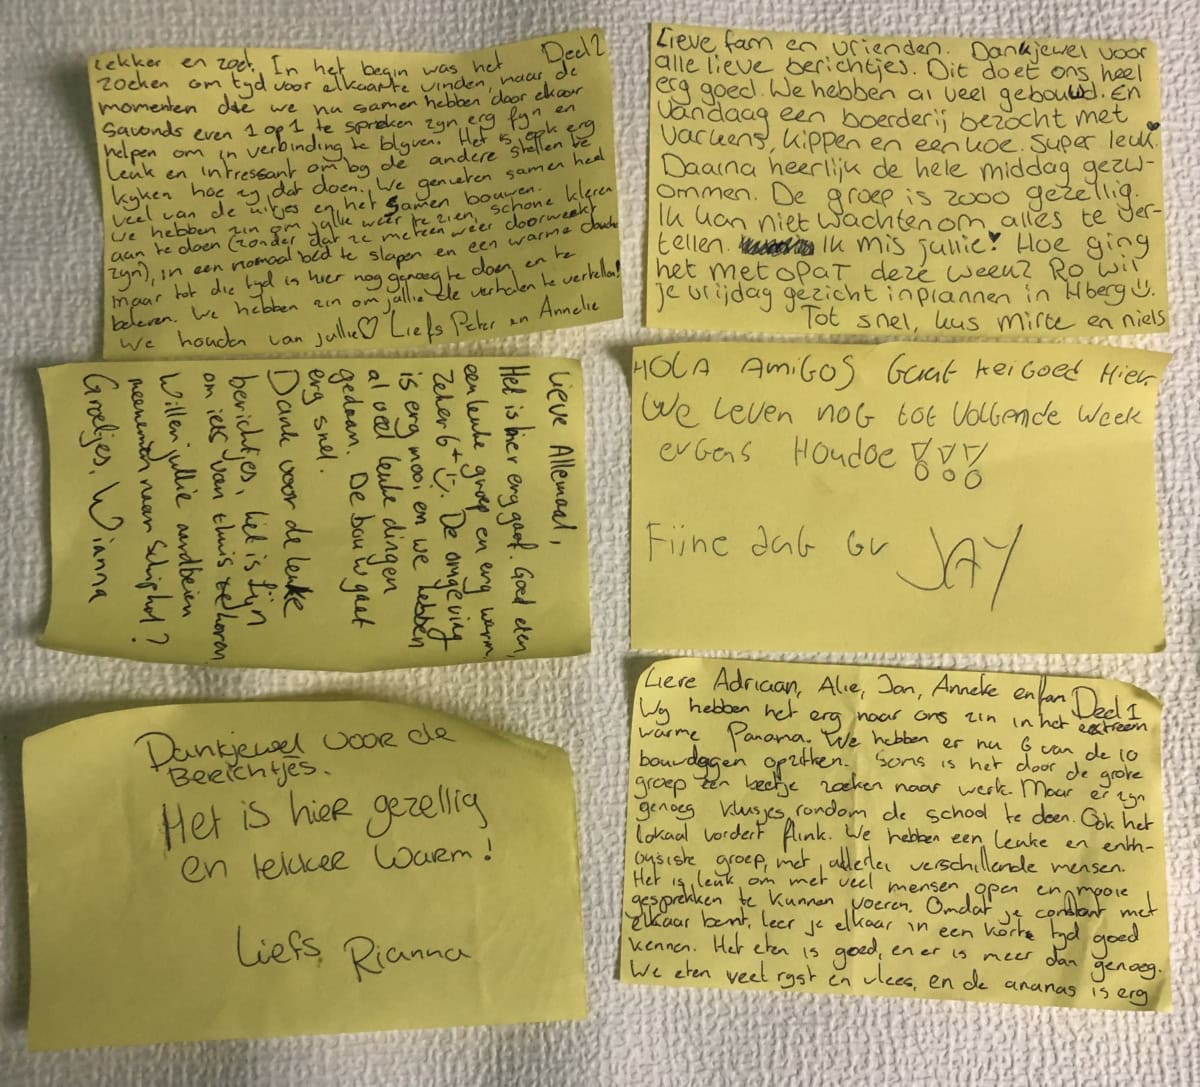 Lekker en zoet. In het begin was het Deel 2
zoeken om tyd voor elkaar te vinden, maar de
momenten die we nu samen hebben door elkaar
savonds even 1 op 1 te spreken zyn erg fyn en
helpen om in verbinding te blyven. Het is ook erg
leuk en intressant om by de andere stellen te
kyken hoe zy dat doen. We genieten samen heel
veel van de uitjes en het samen bouwen.
We hebben zin om jullie weer te zien, schone kleren
aan te doen (zonder dat ze meteen weer doorweekt
zyn), in een normaal bed te slapen en een warme douche
maar tot die tyd is hier nog genoeg te doen en te
beleven. We hebben zin om jullie de verhalen te vertellen!
We houden van jullie♡ Liefs Peter en Annelie
Lieve fam en vrienden. Dankjewel voor
alle lieve berichtjes. Dit doet ons heel
erg goed. We hebben al veel gebouwd. En
vandaag een boerderij bezocht met
varkens, kippen en een koe. Super leuk
Daarna heerlijk de hele middag gezw-
ommen. De groep is zooo gezellig.
Ik kan niet wachten om alles te ver-
tellen. Ik mis jullie! Hoe ging
het met opaT deze week? Ro wil
je vrijdag gezicht inplannen in Hberg☺.
Tot snel, kus Mirte en niels
Lieve Allemaal,
Het is hier erg gaaf. Goed eten,
een leuke groep en erg warm,
zeker 6+ ☺. De omgeving
is erg mooi en we hebben
al veel leuke dingen
gedaan. De bouw gaat
erg snel.
Dank voor de leuke
berichtjes, het is fijn
om iets van thuis te horen
Willen jullie aardbeien
meenemen naar Schiphol?
Groetjes, Wianna
HOLA AMiGOS Gaat Kei Goed Hier
We Leven nog tot Volgende week
ergens Houdoe !!!
Fijne dag Gr JAY
Dankjewel voor de
Berichtjes.
Het is hier gezellig
en lekker warm!
Liefs Rianna
Lieve Adriaan, Alie, Jan, Anneke en fam Deel 1
Wy hebben het erg naar ons zin in het extreem
warme Panama. We hebben er nu 6 van de 10
bouwdagen opzitten. Soms is het door de grote
groep een beetje zoeken naar werk. Maar er zyn
genoeg klusjes rondom de school te doen. Ook het
lokaal vordert flink. We hebben een leuke en enth-
ousiste groep, met allerlei verschillende mensen.
Het is leuk om met veel mensen open en mooie
gesprekken te kunnen voeren. Omdat je constant met
elkaar bent, leer je elkaar in een korte tyd goed
kennen. Het eten is goed, en er is meer dan genoeg.
We eten veel ryst en vlees, en de ananas is erg